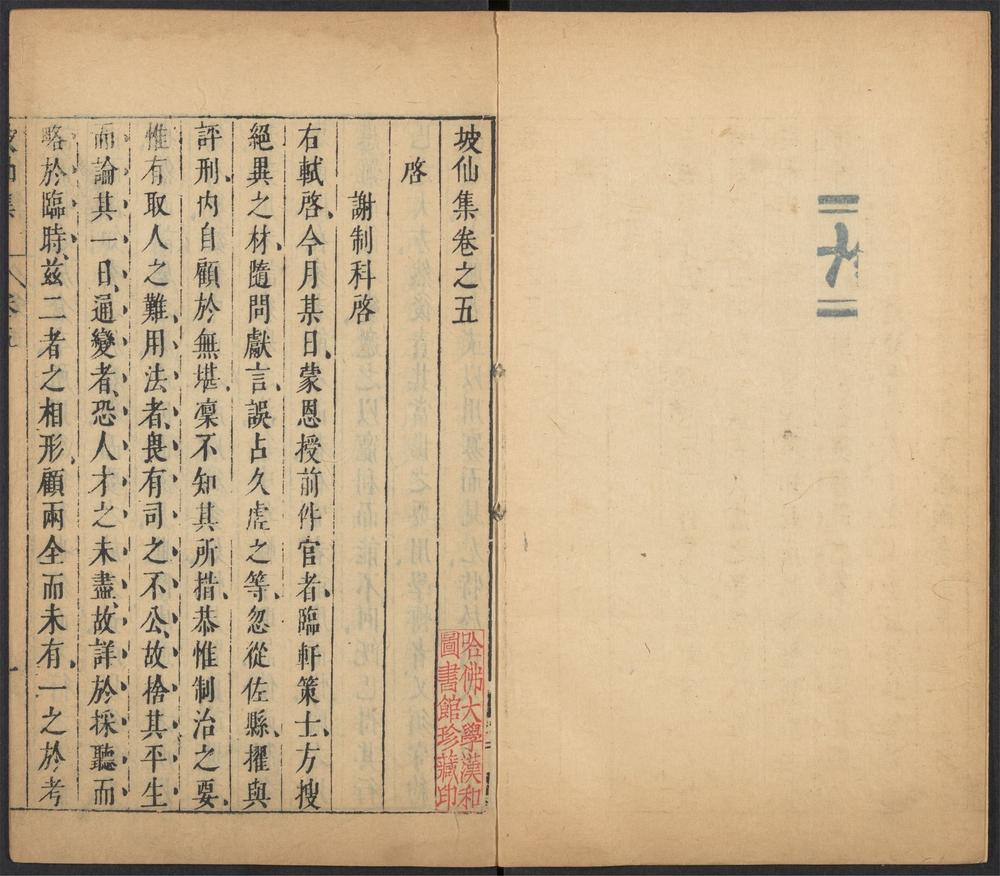 坡仙集卷之五
啓
謝制科啓
右軾啓今月某日蒙恩授前件官者臨軒策士方搜
絕異之材隨問獻言誤占久虗之等忽從佐縣擢與
評刑內自顧於無堪凜不知其所措恭惟制治之要
惟有取人之難用法者畏有司之不公故捨其平生
而論其一日通變者恐人才之未盡故詳於採聽而
略於臨時茲二者之相形顧兩全而未有一之於考
哈佛大學漢和
圖書館珍藏印